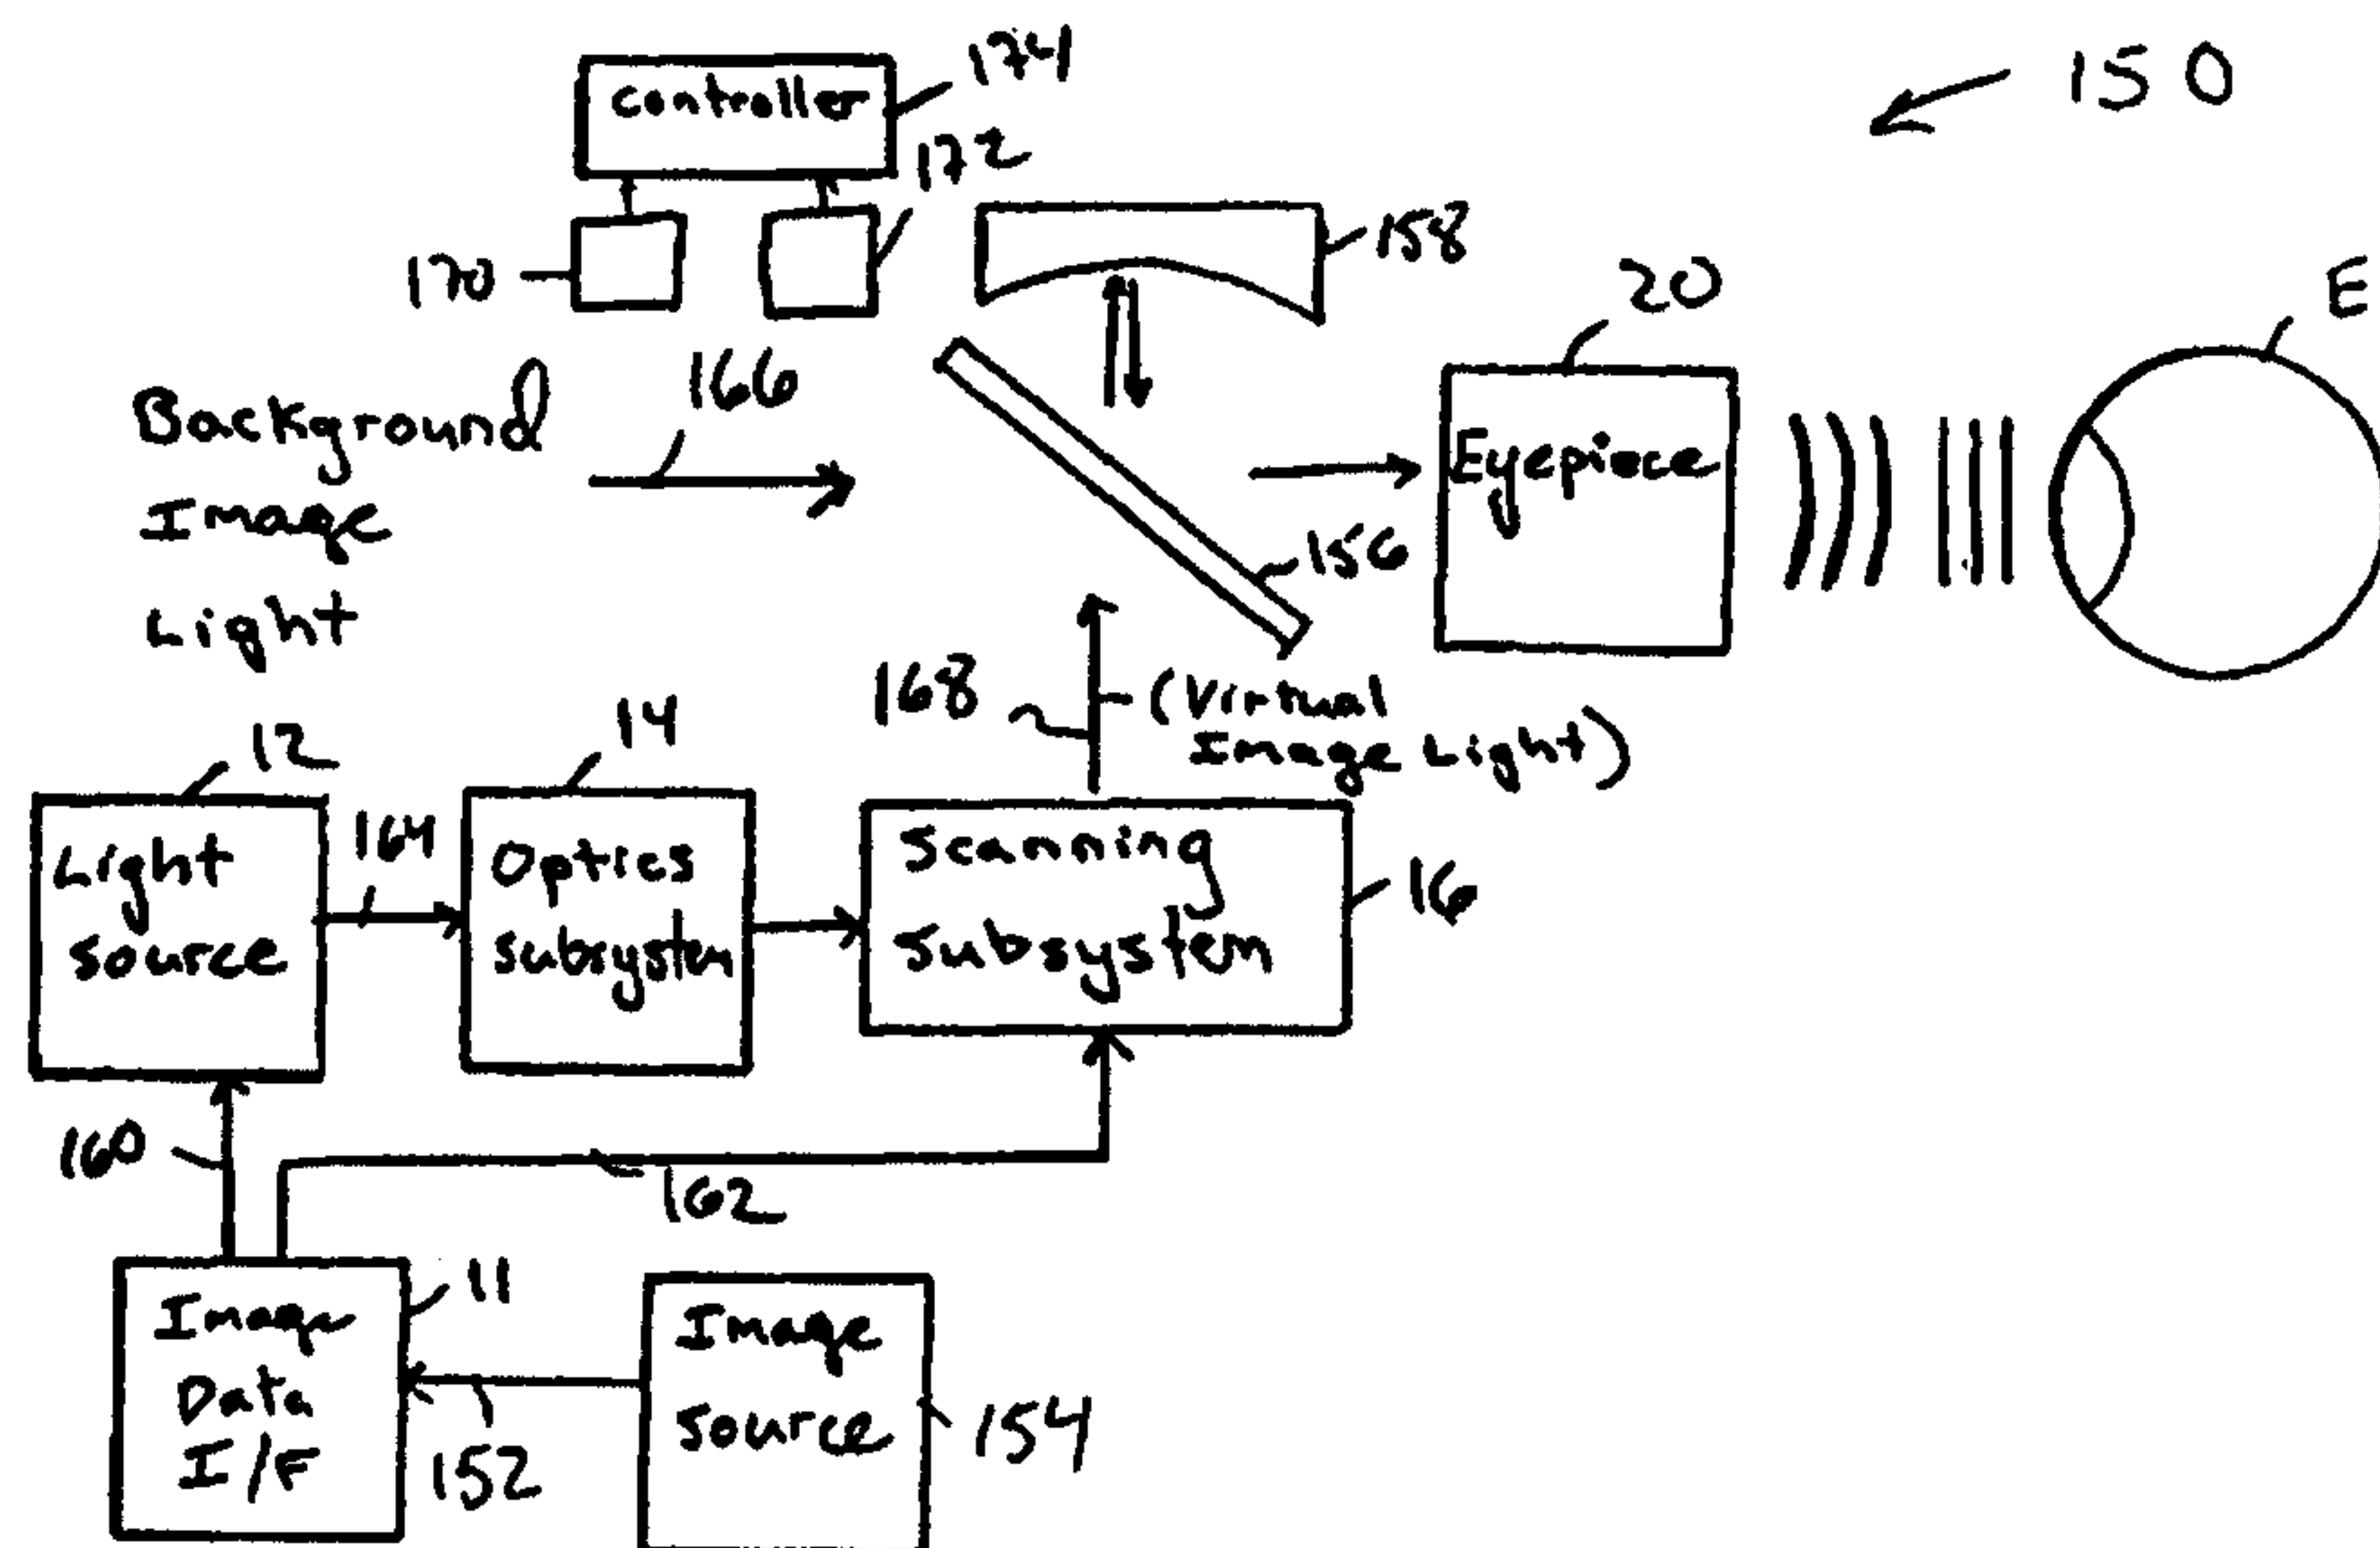 controller
174
150
172
170
158
20
E
166
Background
Image
Light
Eyepiece
156
168
(Virtual
Image Light)
12
14
Light
source
164
Optics
subsystem
Scanning
subsystem
16
160
162
11
Image
Data
I/F
152
Image
source
154